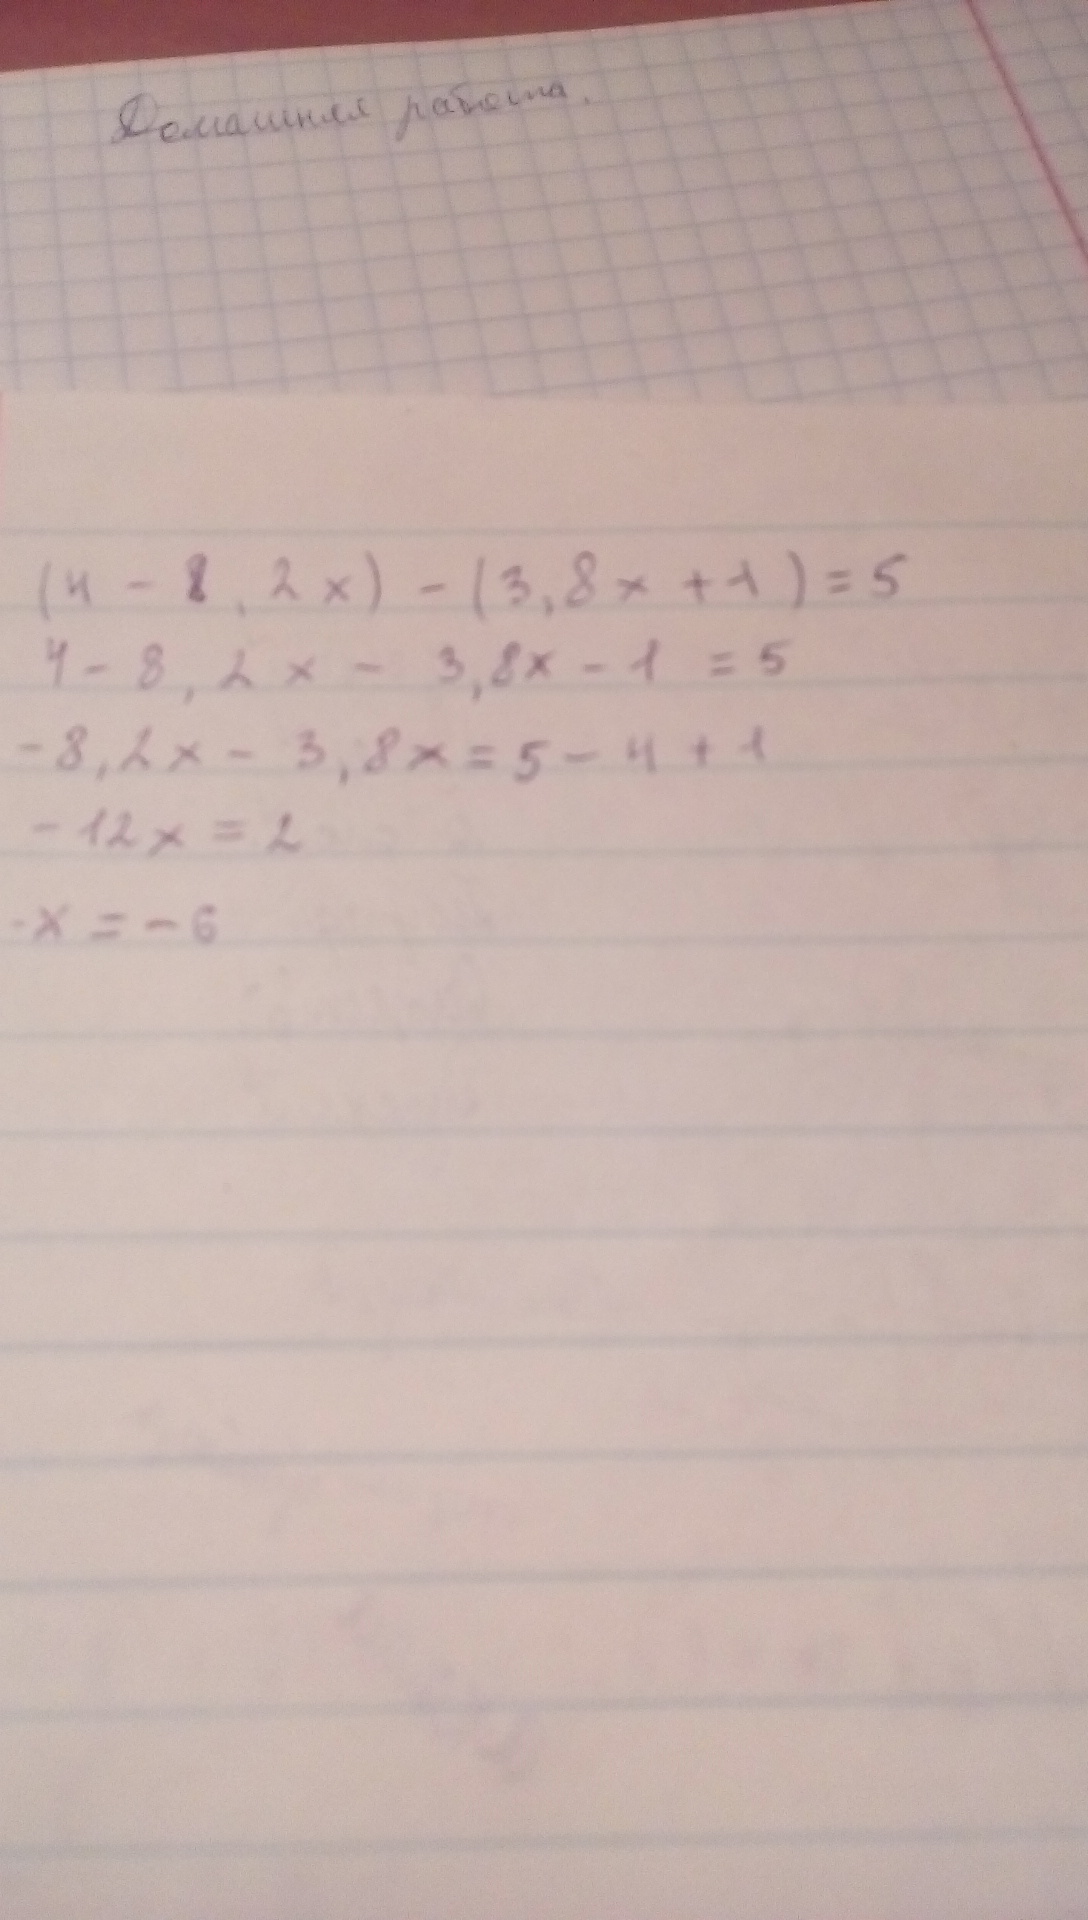 Домашняя работа.
(4 - 8,2x) - (3,8x + 1) = 5
4 - 8,2x - 3,8x - 1 = 5
-8,2x - 3,8x = 5 - 4 + 1
-12x = 2
-x = -6